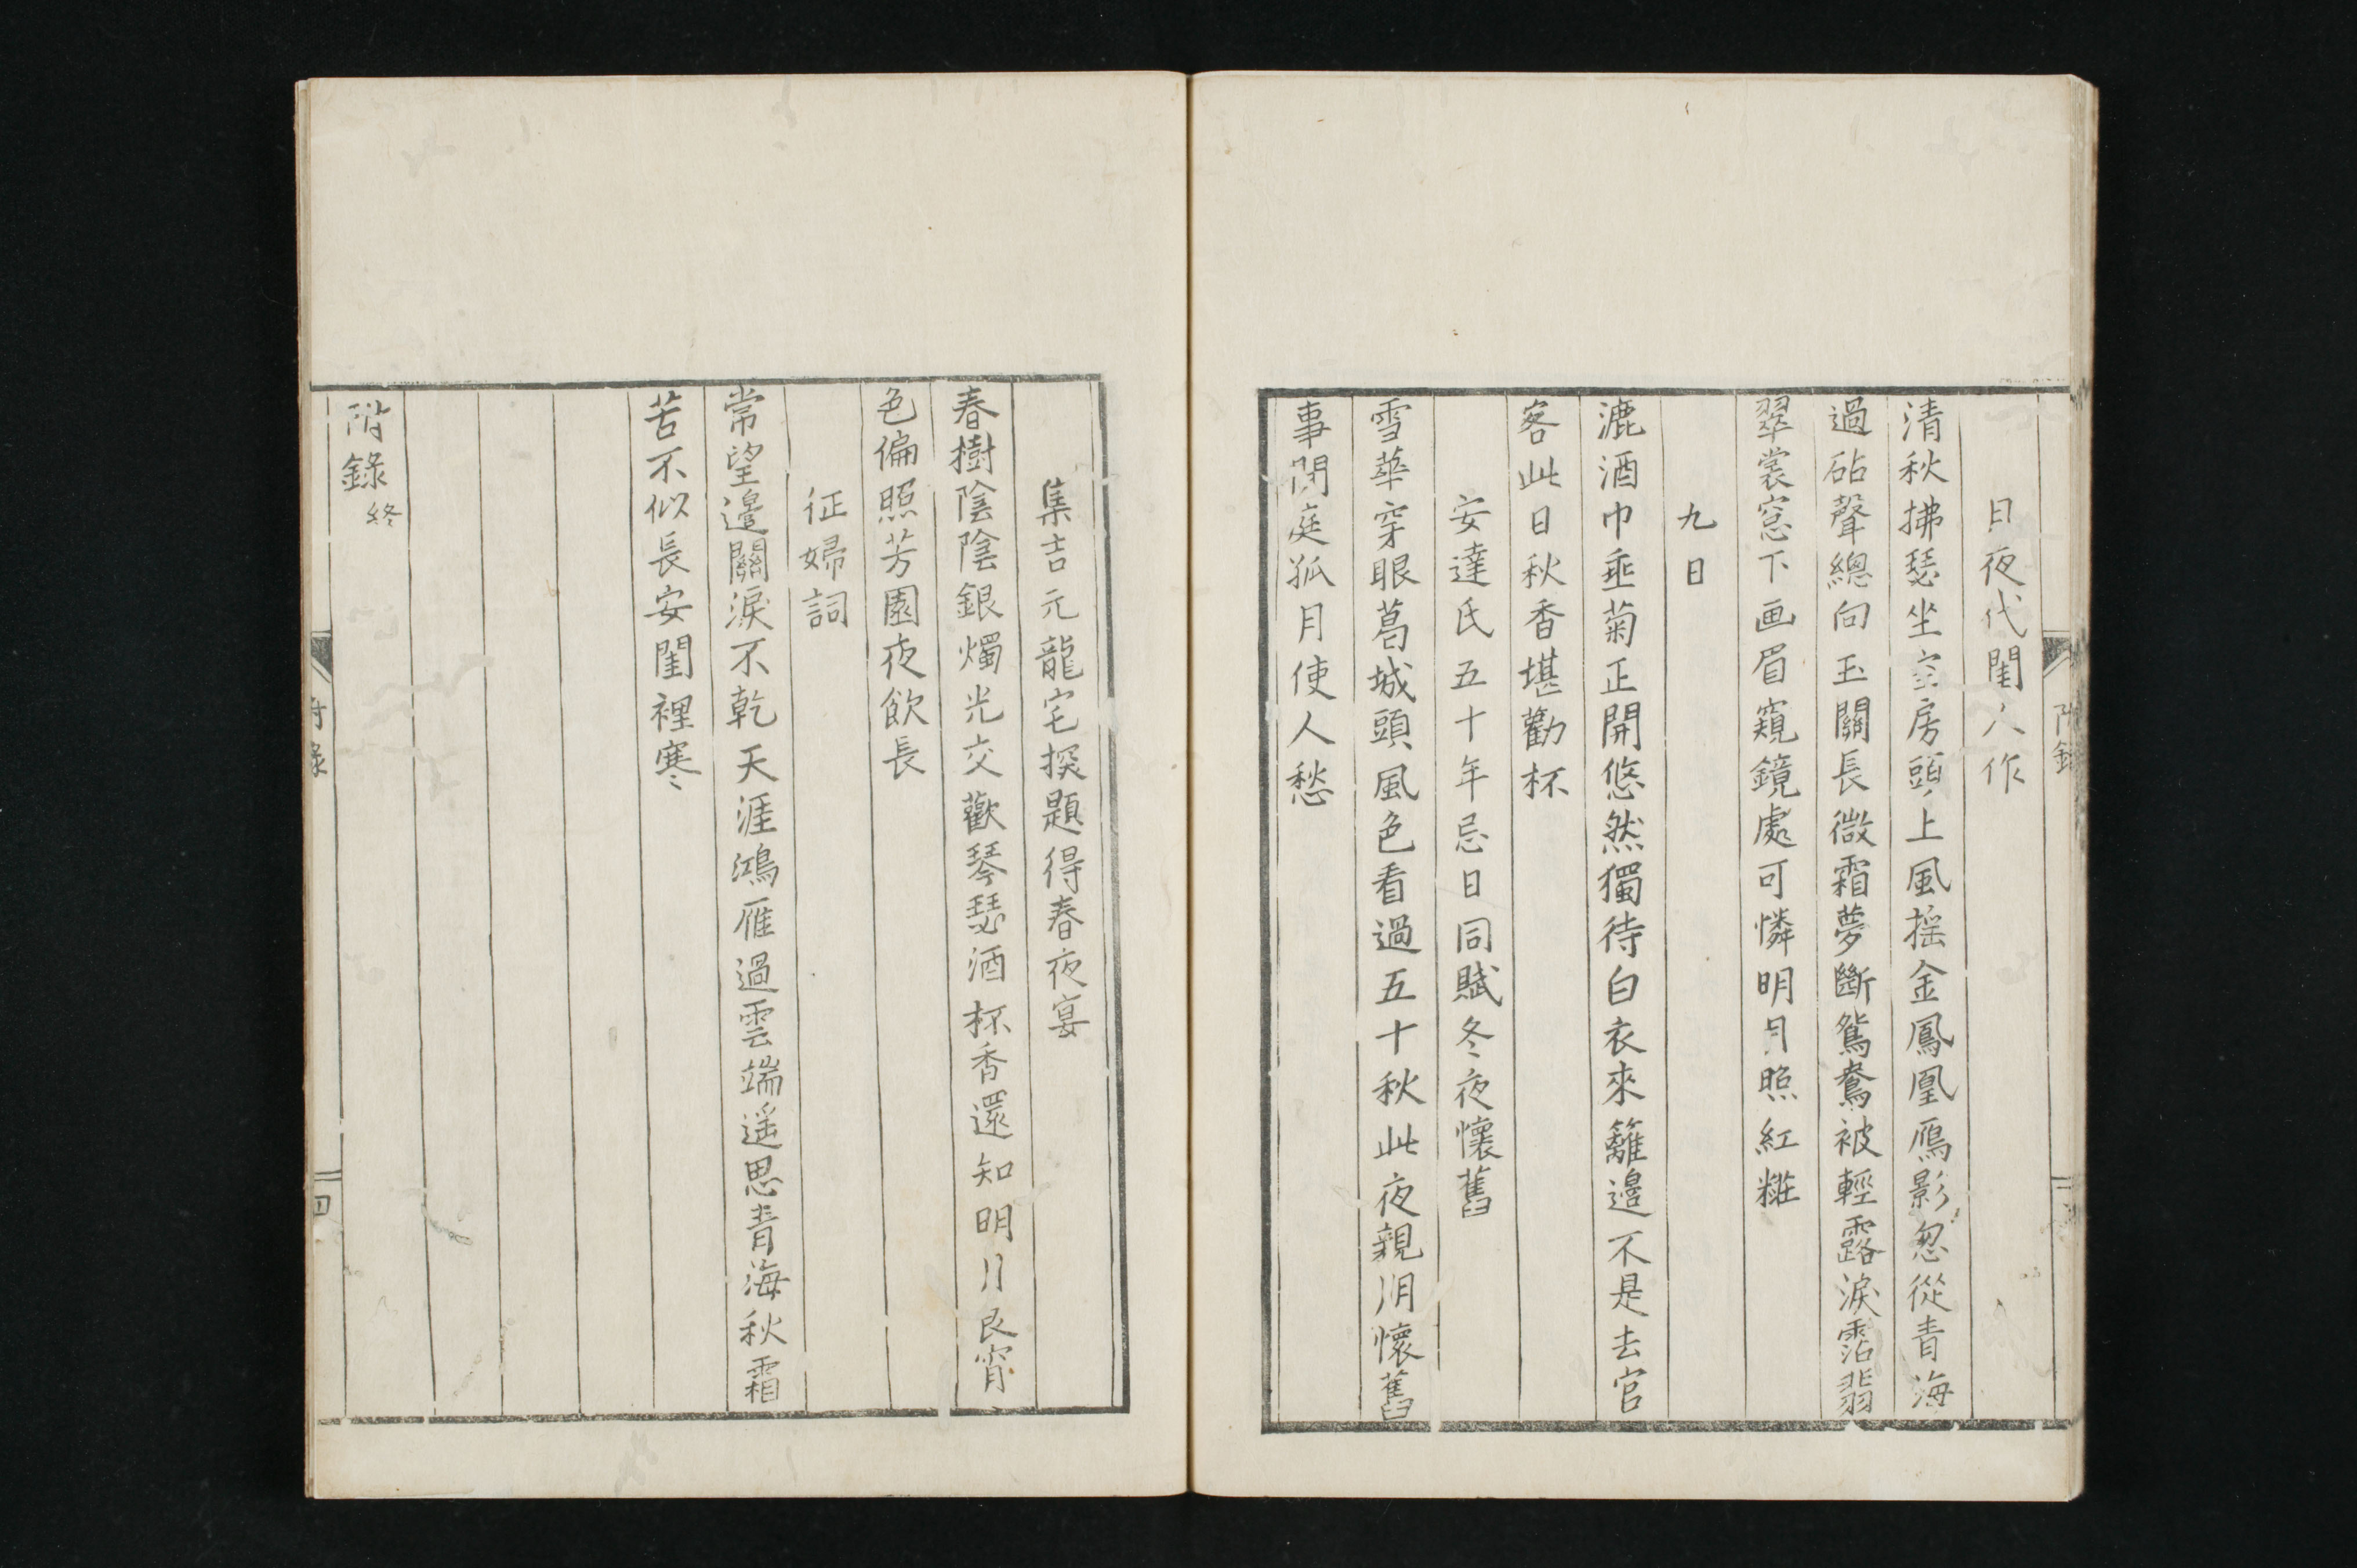 月夜代閨人作
清秋拂瑟坐空房頭上風搖金鳳凰鴈影忽從青海
過砧聲總向玉關長微霜夢斷鴛鴦被輕露淚霑翡
翠裳窓下画眉窺鏡處可憐明月照紅糚
九日
漉酒巾垂菊正開悠然獨待白衣來籬邉不是去官
客此日秋香堪勸杯
安達氏五十年忌日同賦冬夜懷舊
雪華穿眼葛城頭風色看過五十秋此夜親朋懷舊
事閑庭孤月使人愁
附錄
集吉元龍宅探題得春夜宴
春樹陰陰銀燭光交歡琴瑟酒杯香還知明月良宵
色偏照芳園夜飲長
征婦詞
常望邉關淚不乾天涯鴻雁過雲端遥思青海秋霜
苦不似長安閨裡寒
附錄終
附錄
四